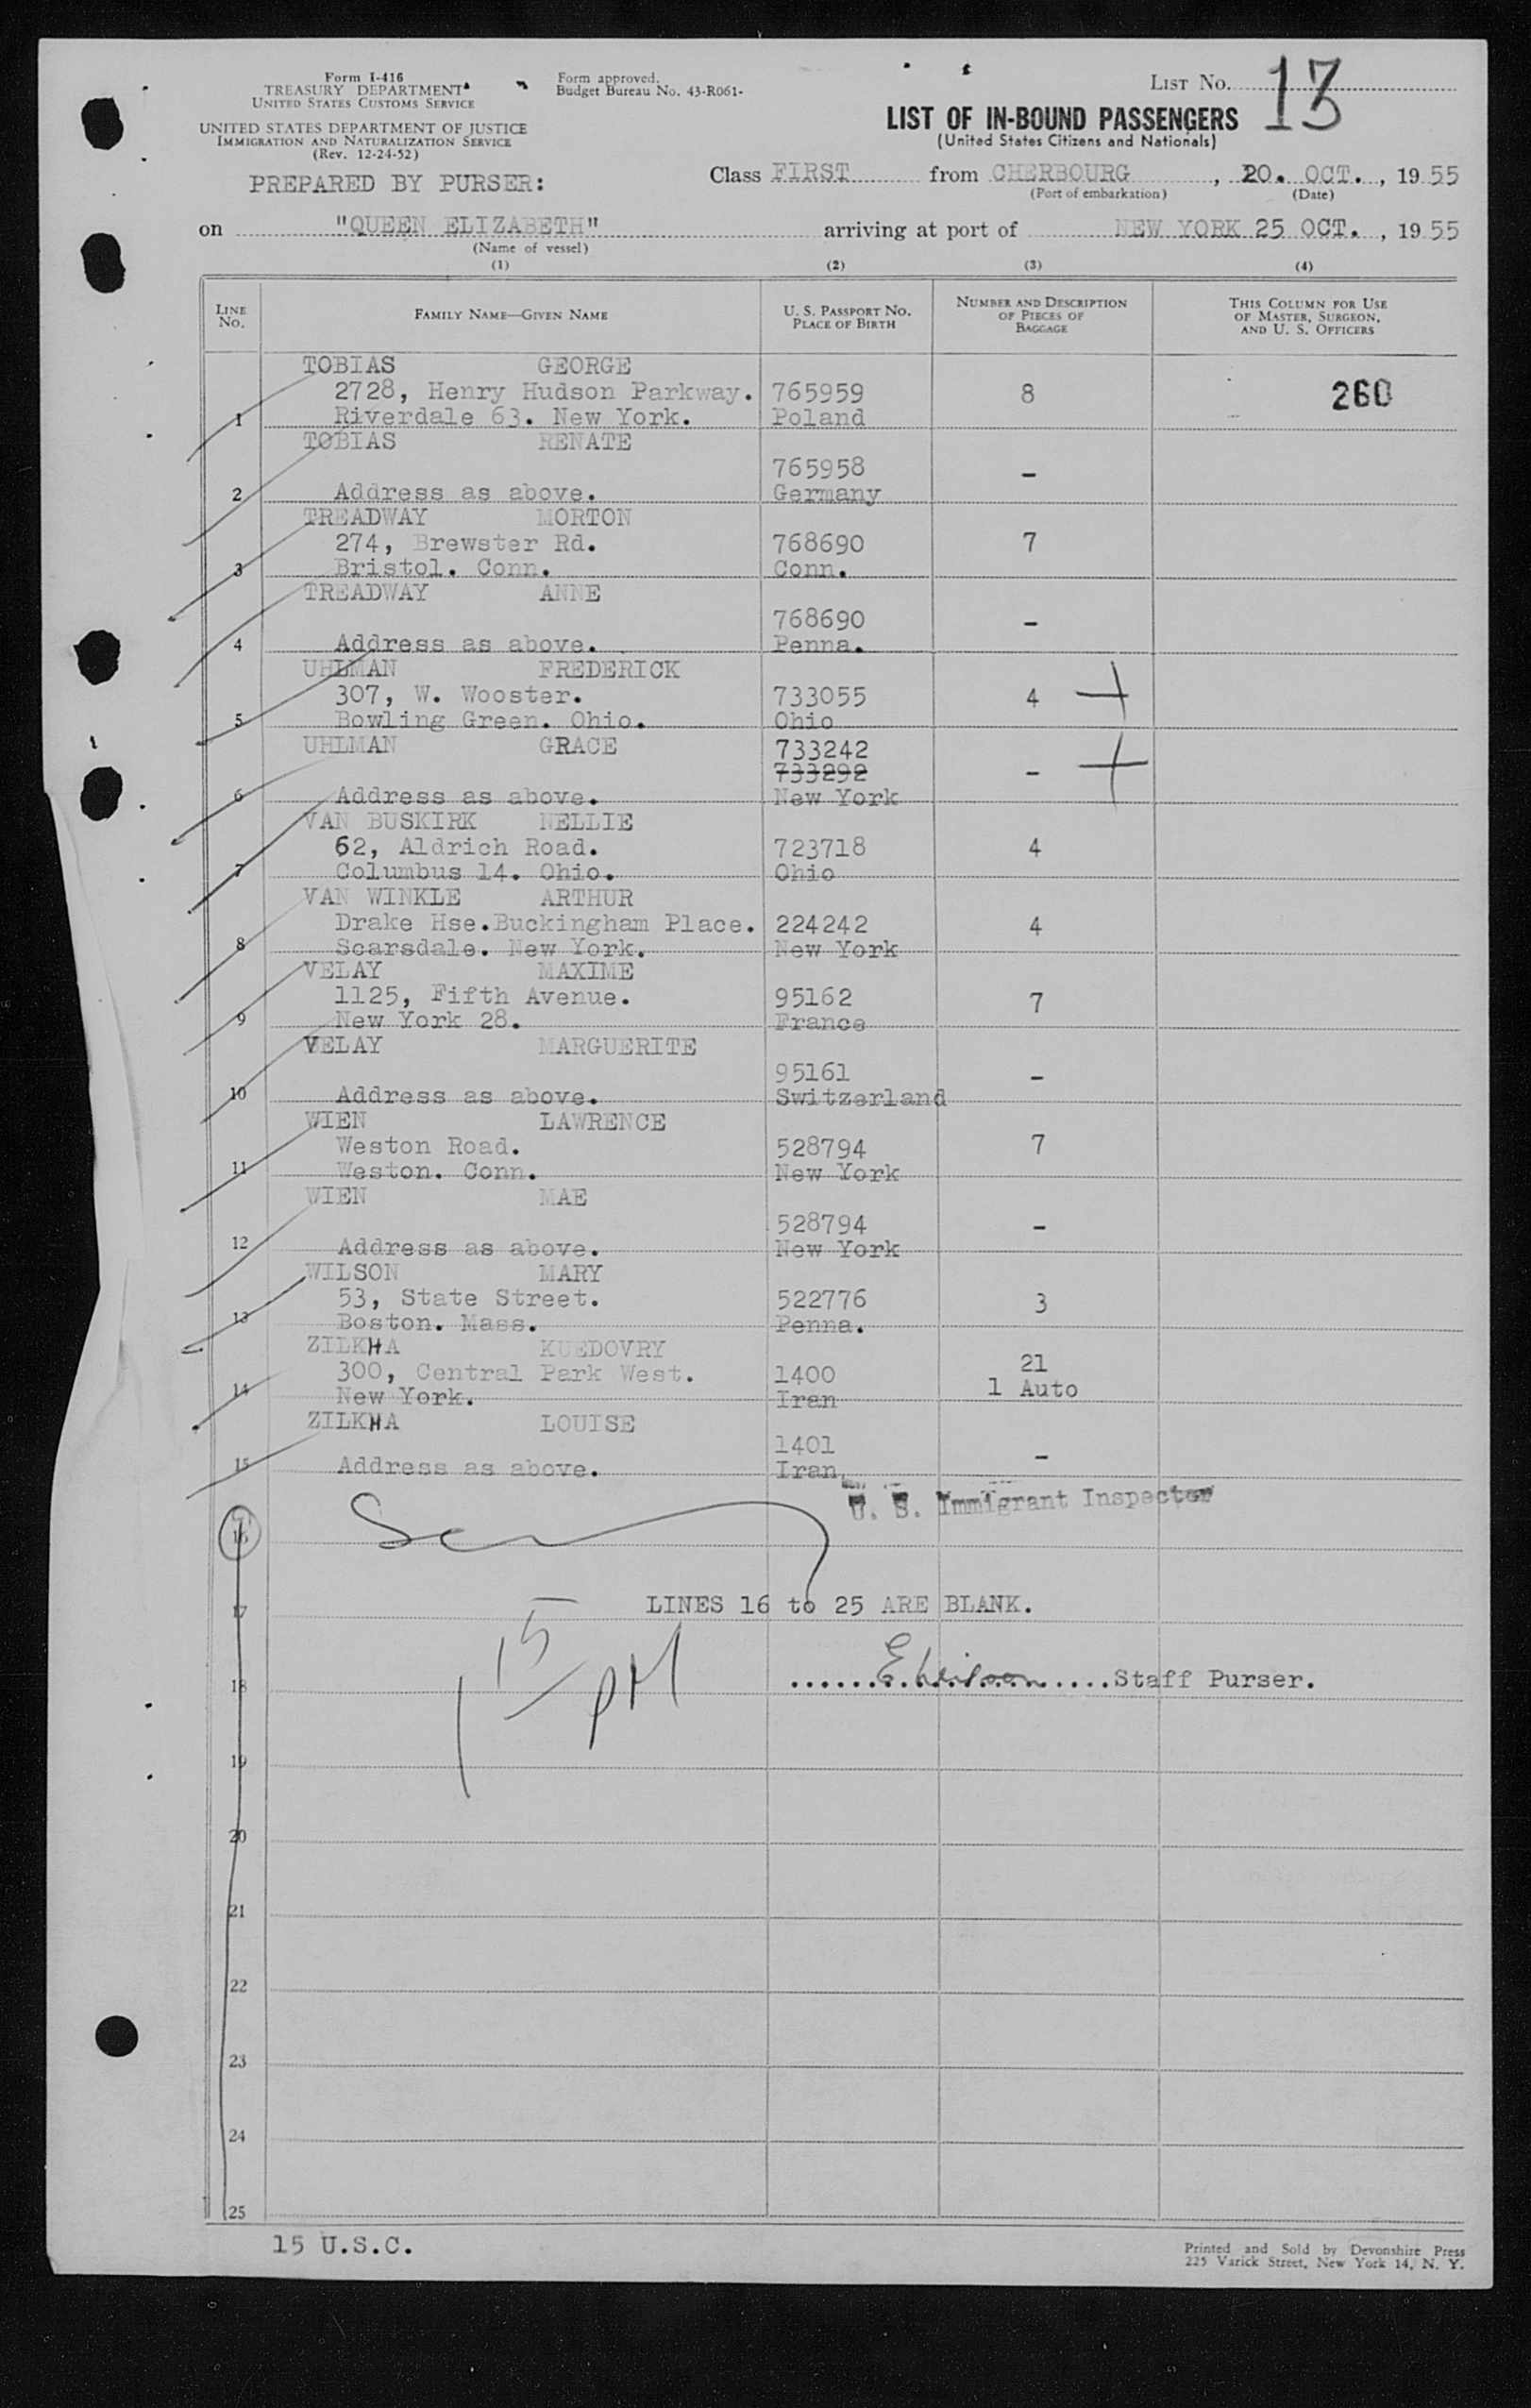 Form I-416
TREASURY DEPARTMENT
UNITED STATES CUSTOMS SERVICE
UNITED STATES DEPARTMENT OF JUSTICE
IMMIGRATION AND NATURALIZATION SERVICE
(Rev. 12-24-52)
Form approved.
Budget Bureau No. 43-R061-
LIST No. 13
LIST OF IN-BOUND PASSENGERS
(United States Citizens and Nationals)
PREPARED BY PURSER:
Class FIRST from CHERBOURG, 20. OCT., 1955
(Port of embarkation) (Date)
on "QUEEN ELIZABETH" arriving at port of NEW YORK 25 OCT., 1955
(Name of vessel)
(1) (2) (3) (4)
LINE No. FAMILY NAME—GIVEN NAME U. S. PASSPORT NO. PLACE OF BIRTH NUMBER AND DESCRIPTION OF PIECES OF BAGGAGE THIS COLUMN FOR USE OF MASTER, SURGEON, AND U. S. OFFICERS
TOBIAS GEORGE
2728, Henry Hudson Parkway. 765959 8 260
1 Riverdale 63. New York. Poland
TOBIAS RENATE
765958 -
2 Address as above. Germany
TREADWAY MORTON
274, Brewster Rd. 768690 7
3 Bristol. Conn. Conn.
TREADWAY ANNE
768690 -
4 Address as above. Penna.
UHLMAN FREDERICK
307, W. Wooster. 733055 4 +
5 Bowling Green. Ohio. Ohio
UHLMAN GRACE 733242
733292 - +
6 Address as above. New York
VAN BUSKIRK NELLIE
62, Aldrich Road. 723718 4
7 Columbus 14. Ohio. Ohio
VAN WINKLE ARTHUR
Drake Hse.Buckingham Place. 224242 4
8 Scarsdale. New York. New York
VELAY MAXIME
1125, Fifth Avenue. 95162 7
9 New York 28. France
VELAY MARGUERITE
95161 -
10 Address as above. Switzerland
WIEN LAWRENCE
Weston Road. 528794 7
11 Weston. Conn. New York
WIEN MAE
528794 -
12 Address as above. New York
WILSON MARY
53, State Street. 522776 3
13 Boston. Mass. Penna.
ZILKHA KUEDOVRY
300, Central Park West. 1400 21
14 New York. Iran 1 Auto
ZILKHA LOUISE
1401 -
15 Address as above. Iran
U. S. Immigrant Inspector
16
17 LINES 16 to 25 ARE BLANK.
1 15 PM
18 E. Wilson Staff Purser.
19
20
21
22
23
24
25
15 U.S.C.
Printed and Sold by Devonshire Press
225 Varick Street, New York 14, N. Y.